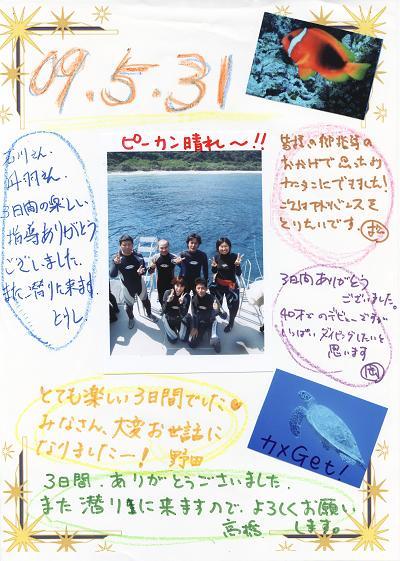 09.5.31
ピーカン晴れ〜!!
石川さん.
丹羽さん.
3日間の楽しい
指導ありがとう
ございました.
また、潜りに来ます.
とりし
皆様の御指導の
おかげで
でました!
とりたいです。
3日間ありがとう
ございました。
40本
ダイビングしたいと
思います
岡
とても楽しい3日間でした
みなさん、大変お世話に
なりましたー! 野田
カメGet!
3日間、ありがとうございました.
また潜りに来ますので、よろしくお願い
高橋 します。